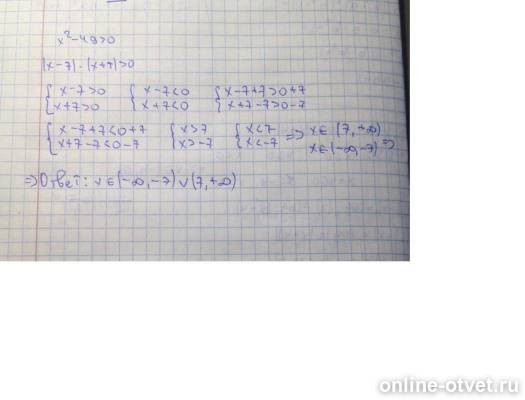 x²-49>0
(x-7)·(x+7)>0
{x-7>0 {x-7<0 {x-7+7>0+7
{x+7>0 {x+7<0 {x+7-7>0-7
{x-7+7<0+7 {x>7 {x<7 => x∈(7,+∞)
{x+7-7<0-7 {x>-7 {x<-7 x∈(-∞,-7) =>
=> Ответ: x∈(-∞,-7)∪(7,+∞)
online-otvet.ru